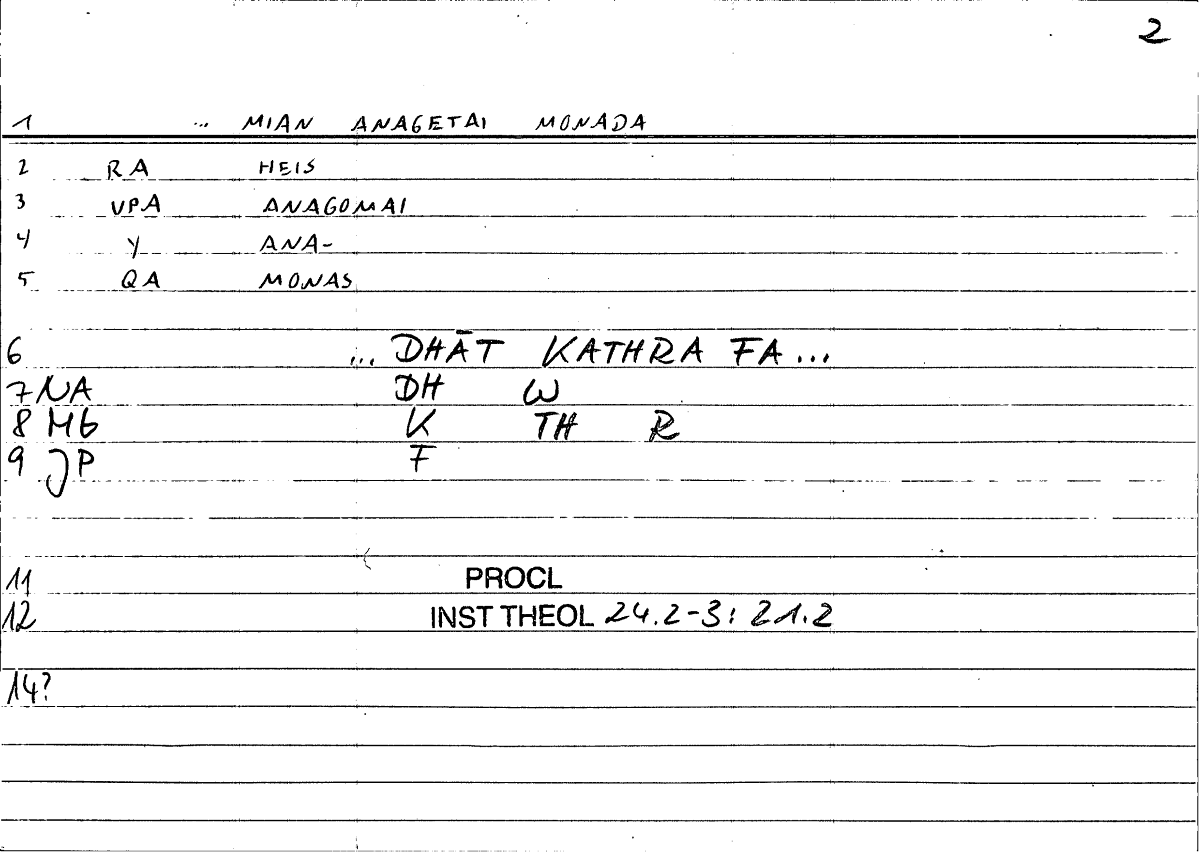 2
1 ... MIAN ANAGETAI MONADA
2 RA HEIS
3 VPA ANAGOMAI
4 Y ANA-
5 QA MONAS
6 ... DHĀT KATHRA FA ...
7 NA DH W
8 M6 K TH R
9 JP F
11 PROCL
12 INST THEOL 24.2-3: 21.2
14?